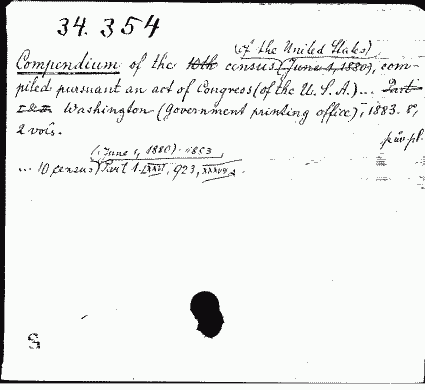 34.354
(of the United States)
Compendium of the 10th census (June 1, 1880), com-
piled pursuant an act of Congress (of the U.S.A.)... Part
I & II. Washington (Government printing office), 1883. 8°,
2 vols.
(June 1, 1880). 1883
... 10 census) Part 1. 923, XXXVII
S